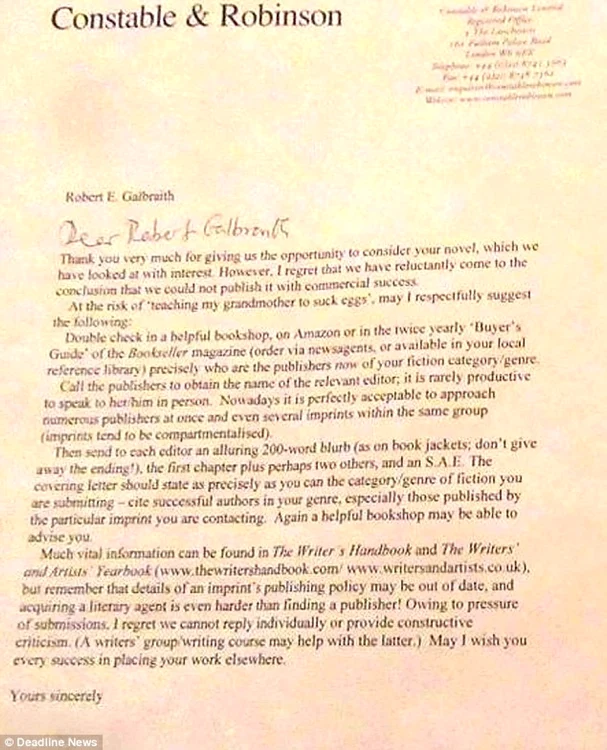 Constable & Robinson
Constable & Robinson Limited
Registered Office
3 The Lanchesters
162 Fulham Palace Road
London W6 9ER
Robert E. Galbraith
Dear Robert Galbraith
Thank you very much for giving us the opportunity to consider your novel, which we
have looked at with interest. However, I regret that we have reluctantly come to the
conclusion that we could not publish it with commercial success.
At the risk of 'teaching my grandmother to suck eggs', may I respectfully suggest
the following:
Double check in a helpful bookshop, on Amazon or in the twice yearly 'Buyer's
Guide' of the Bookseller magazine (order via newsagents, or available in your local
reference library) precisely who are the publishers now of your fiction category/genre.
Call the publishers to obtain the name of the relevant editor; it is rarely productive
to speak to her/him in person. Nowadays it is perfectly acceptable to approach
numerous publishers at once and even several imprints within the same group
(imprints tend to be compartmentalised).
Then send to each editor an alluring 200-word blurb (as on book jackets; don't give
away the ending!), the first chapter plus perhaps two others, and an S.A.E. The
covering letter should state as precisely as you can the category/genre of fiction you
are submitting – cite successful authors in your genre, especially those published by
the particular imprint you are contacting. Again a helpful bookshop may be able to
advise you.
Much vital information can be found in The Writer's Handbook and The Writers'
and Artists' Yearbook (www.thewritershandbook.com/ www.writersandartists.co.uk),
but remember that details of an imprint's publishing policy may be out of date, and
acquiring a literary agent is even harder than finding a publisher! Owing to pressure
of submissions, I regret we cannot reply individually or provide constructive
criticism. (A writers' group/writing course may help with the latter.) May I wish you
every success in placing your work elsewhere.
Yours sincerely
© Deadline News